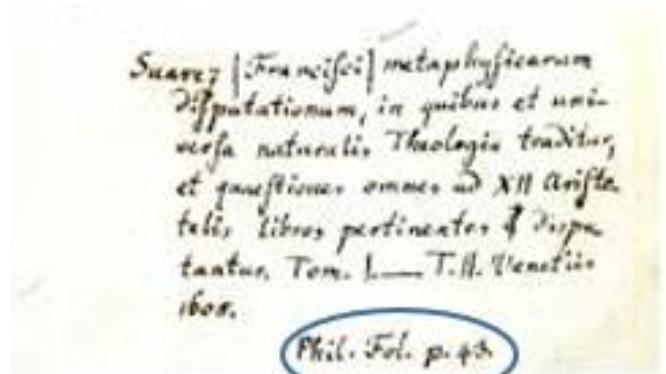 Suarez [Francisci] metaphysicarum
disputationum, in quibus et uni-
versa naturalis Theologia traditur,
et quaestiones omnes ad XII Aristo-
telis libros pertinentes dispu-
tantur. Tom. I.—T.II. Venetiis
1605.
Phil. Fol. p. 43.